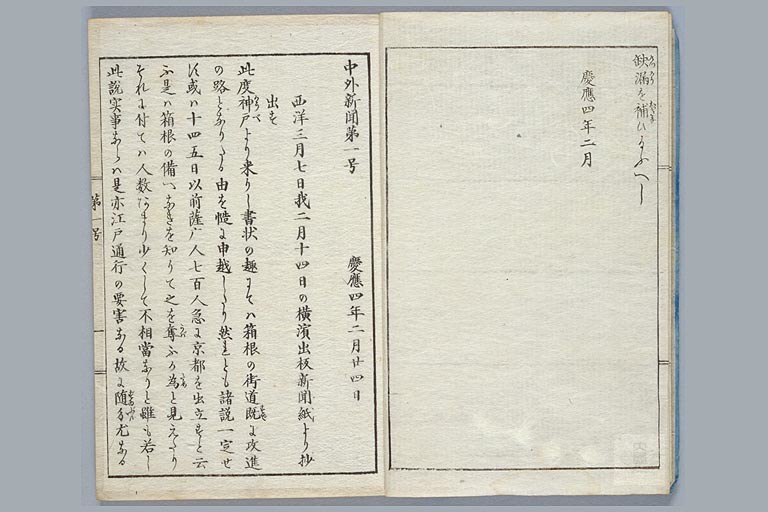 缺漏を補ひ給ふべし
慶應四年二月
中外新聞第一号
慶應四年二月廿四日
西洋三月七日我二月十四日の横濱出板新聞紙より抄
出す
此度神戸より来りし書状の趣にてハ箱根の街道既に攻進
の路となりたる由を慥に申越したり然れども諸説一定せ
ず或ハ十四五日以前薩广人七百人急に京都を出立すと云
ふ是ハ箱根の備へなきを知りて之を奪ふ為と見えたり
それに付てハ人数あまり少くして不相當なりと雖も若し
此説実事ならバ是亦江戸通行の要害なる故に随分尤なる
第一号
一